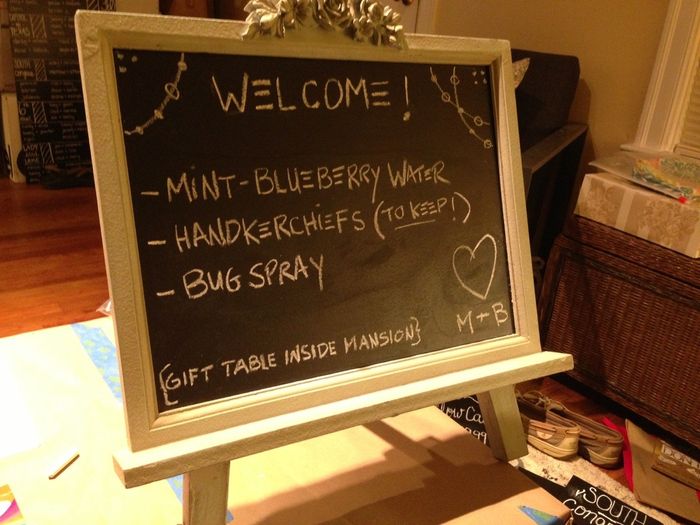 WELCOME!
- MINT-BLUEBERRY WATER
- HANDKERCHIEFS (TO KEEP!)
- BUG SPRAY
M+B
{GIFT TABLE INSIDE MANSION}
SOUTH
SOUTH